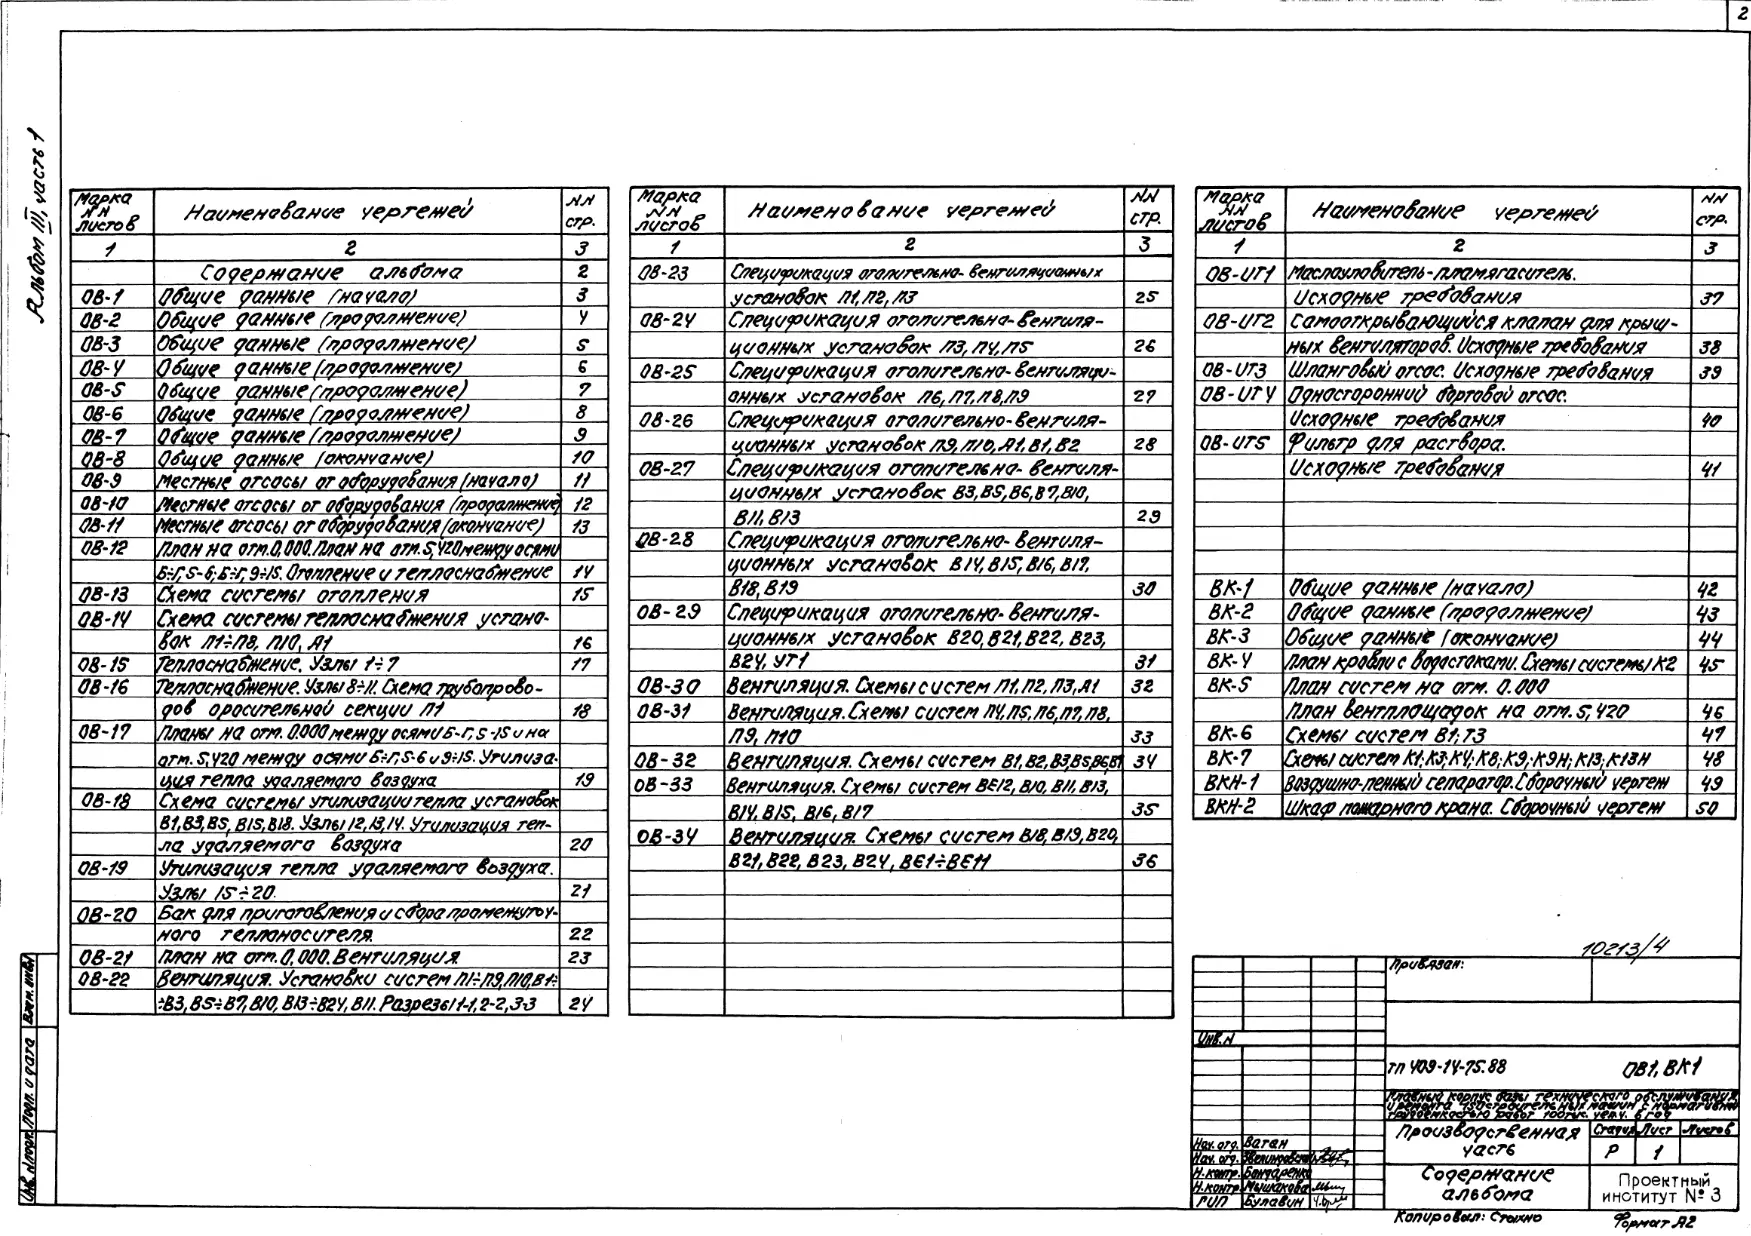 2
Альбом III, часть 1
Марка NN листов
Наименование чертежей
NN стр.
1 2 3
Содержание альбома 2
ОВ-1 Общие данные (начало) 3
ОВ-2 Общие данные (продолжение) 4
ОВ-3 Общие данные (продолжение) 5
ОВ-4 Общие данные (продолжение) 6
ОВ-5 Общие данные (продолжение) 7
ОВ-6 Общие данные (продолжение) 8
ОВ-7 Общие данные (продолжение) 9
ОВ-8 Общие данные (окончание) 10
ОВ-9 Местные отсосы от оборудования (начало) 11
ОВ-10 Местные отсосы от оборудования (продолжение) 12
ОВ-11 Местные отсосы от оборудования (окончание) 13
ОВ-12 План на отм. 0.000. План на отм. 5,420 между осями
Б÷Г, 5-6; Б÷Г, 9÷15. Отопление и теплоснабжение 14
ОВ-13 Схема системы отопления 15
ОВ-14 Схема системы теплоснабжения устано-
вок П1÷П8, П10, А1 16
ОВ-15 Теплоснабжение. Узлы 1÷7 17
ОВ-16 Теплоснабжение. Узлы 8÷11. Схема трубопрово-
дов оросительной секции П1 18
ОВ-17 Планы на отм. 0.000 между осями Б-Г, 5-15 и на
отм. 5,420 между осями Б÷Г, 5-6 и 9÷15. Утилиза-
ция тепла удаляемого воздуха 19
ОВ-18 Схема системы утилизации тепла установок
В1, В3, В5, В15, В18. Узлы 12, 13, 14. Утилизация теп-
ла удаляемого воздуха 20
ОВ-19 Утилизация тепла удаляемого воздуха.
Узлы 15÷20. 21
ОВ-20 Бак для приготовления и сбора промежуточ-
ного теплоносителя. 22
ОВ-21 План на отм. 0.000. Вентиляция 23
ОВ-22 Вентиляция. Установки систем П1÷П9, П10, В1÷
÷В3, В5÷В7, В10, В13÷В24, В11. Разрезы 1-1, 2-2, 3-3 24
Марка NN листов
Наименование чертежей
NN стр.
1 2 3
ОВ-23 Спецификация отопительно-вентиляционных
установок П1, П2, П3 25
ОВ-24 Спецификация отопительно-вентиля-
ционных установок П3, П4, П5 26
ОВ-25 Спецификация отопительно-вентиляци-
онных установок П6, П7, П8, П9 27
ОВ-26 Спецификация отопительно-вентиля-
ционных установок П9, П10, А1, В1, В2 28
ОВ-27 Спецификация отопительно-вентиля-
ционных установок В3, В5, В6, В7, В10,
В11, В13 29
ОВ-28 Спецификация отопительно-вентиля-
ционных установок В14, В15, В16, В17,
В18, В19 30
ОВ-29 Спецификация отопительно-вентиля-
ционных установок В20, В21, В22, В23,
В24, УТ1 31
ОВ-30 Вентиляция. Схемы систем П1, П2, П3, А1 32
ОВ-31 Вентиляция. Схемы систем П4, П5, П6, П7, П8,
П9, П10 33
ОВ-32 Вентиляция. Схемы систем В1, В2, В3, В5, В6, В7 34
ОВ-33 Вентиляция. Схемы систем ВЕ12, В10, В11, В13,
В14, В15, В16, В17 35
ОВ-34 Вентиляция. Схемы систем В18, В19, В20,
В21, В22, В23, В24, ВЕ1÷ВЕ11 36
Марка NN листов
Наименование чертежей
NN стр.
1 2 3
ОВ-ИТ1 Маслоуловитель-пламягаситель.
Исходные требования 37
ОВ-ИТ2 Самооткрывающийся клапан для крыш-
ных вентиляторов. Исходные требования 38
ОВ-ИТ3 Шланговый отсос. Исходные требования 39
ОВ-ИТ4 Односторонний бортовой отсос.
Исходные требования 40
ОВ-ИТ5 Фильтр для раствора.
Исходные требования 41
ВК-1 Общие данные (начало) 42
ВК-2 Общие данные (продолжение) 43
ВК-3 Общие данные (окончание) 44
ВК-4 План кровли с водостоками. Схемы системы К2 45
ВК-5 План систем на отм. 0.000
План вентплощадок на отм. 5,420 46
ВК-6 Схемы систем В1; Т3 47
ВК-7 Схемы систем К1; К3; К4; К8; К9; К9Н; К13; К13Н 48
ВКН-1 Воздушно-пенный сепаратор. Сборочный чертеж 49
ВКН-2 Шкаф пожарного крана. Сборочный чертеж 50
10213/4
Привязан:
Инв. N
тп 409-14-75.88 ОВ1, ВК1
Главный корпус базы технического обслуживания
и ремонта строительных машин с нормативной
трудоемкостью работ 100тыс. чел.ч. в год
Производственная часть
Стадия Лист Листов
Р 1
Содержание альбома
Проектный институт № 3
Нач. отд. Ваган
Нач. отд.
Н. контр. Бондаренко
Н. контр. Мышакова
ГИП Булавин
Инв. N подл. Подп. и дата Взам. инв. N
Копировал: Стыхно
Формат А2